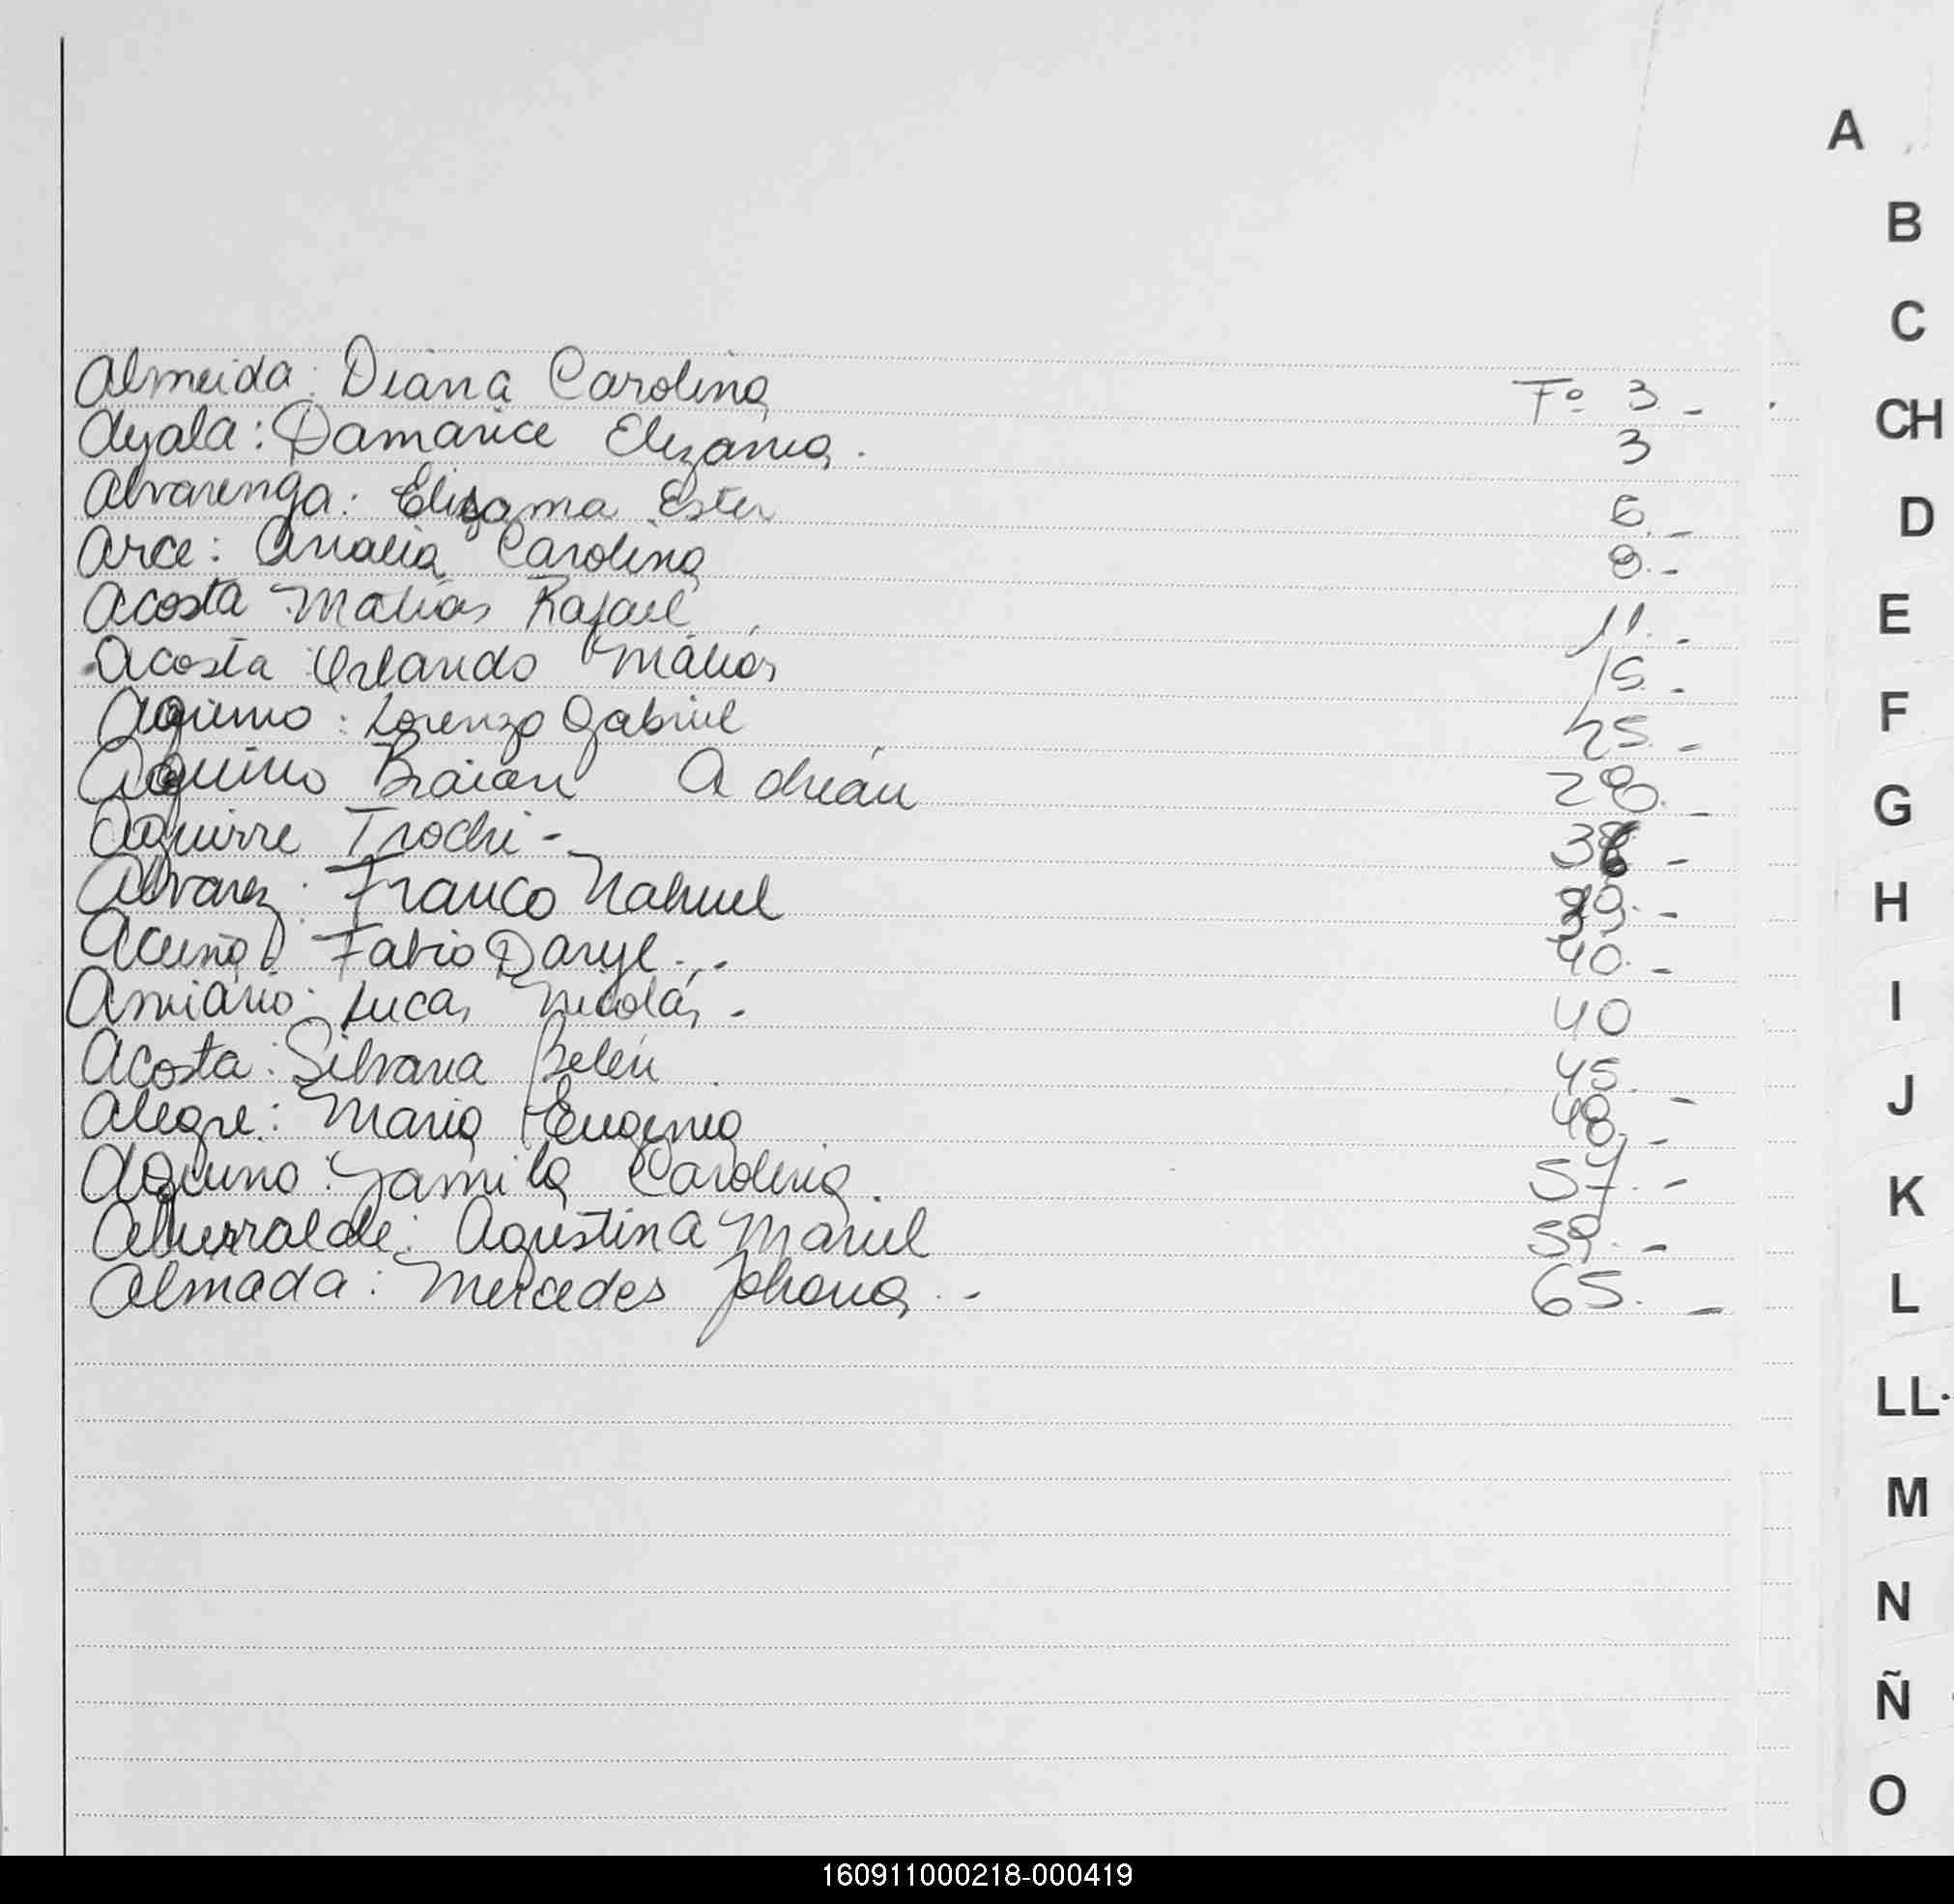 A
B
C
Almeida: Diana Carolina Fº 3.-
CH
Ayala: Damarice Elizania. 3
Alvarenga: Elizama Ester 6.-
D
Arce: Analia Carolina 8.-
Acosta Matías Rafael 11.-
E
Acosta Orlando Matías 15.-
Aquino: Lorenzo Gabriel 25.-
F
Aquino Braian Adrián 28.-
G
Aguirre Trochi- 38-
Alvarez: Franco Nahuel 39.-
H
Acuña: Fabio Daryl.- 40.-
Amiano: Lucas Nicolás.- 40
I
Acosta: Silvana Belén 45.-
Alegre: Maria Eugenia 48.-
J
Aquino: Yamila Carolina. 57.-
K
Agustina Mariel 59.-
Almada: Mercedes Johana.- 65.-
L
LL
M
N
Ñ
O
160911000218-000419